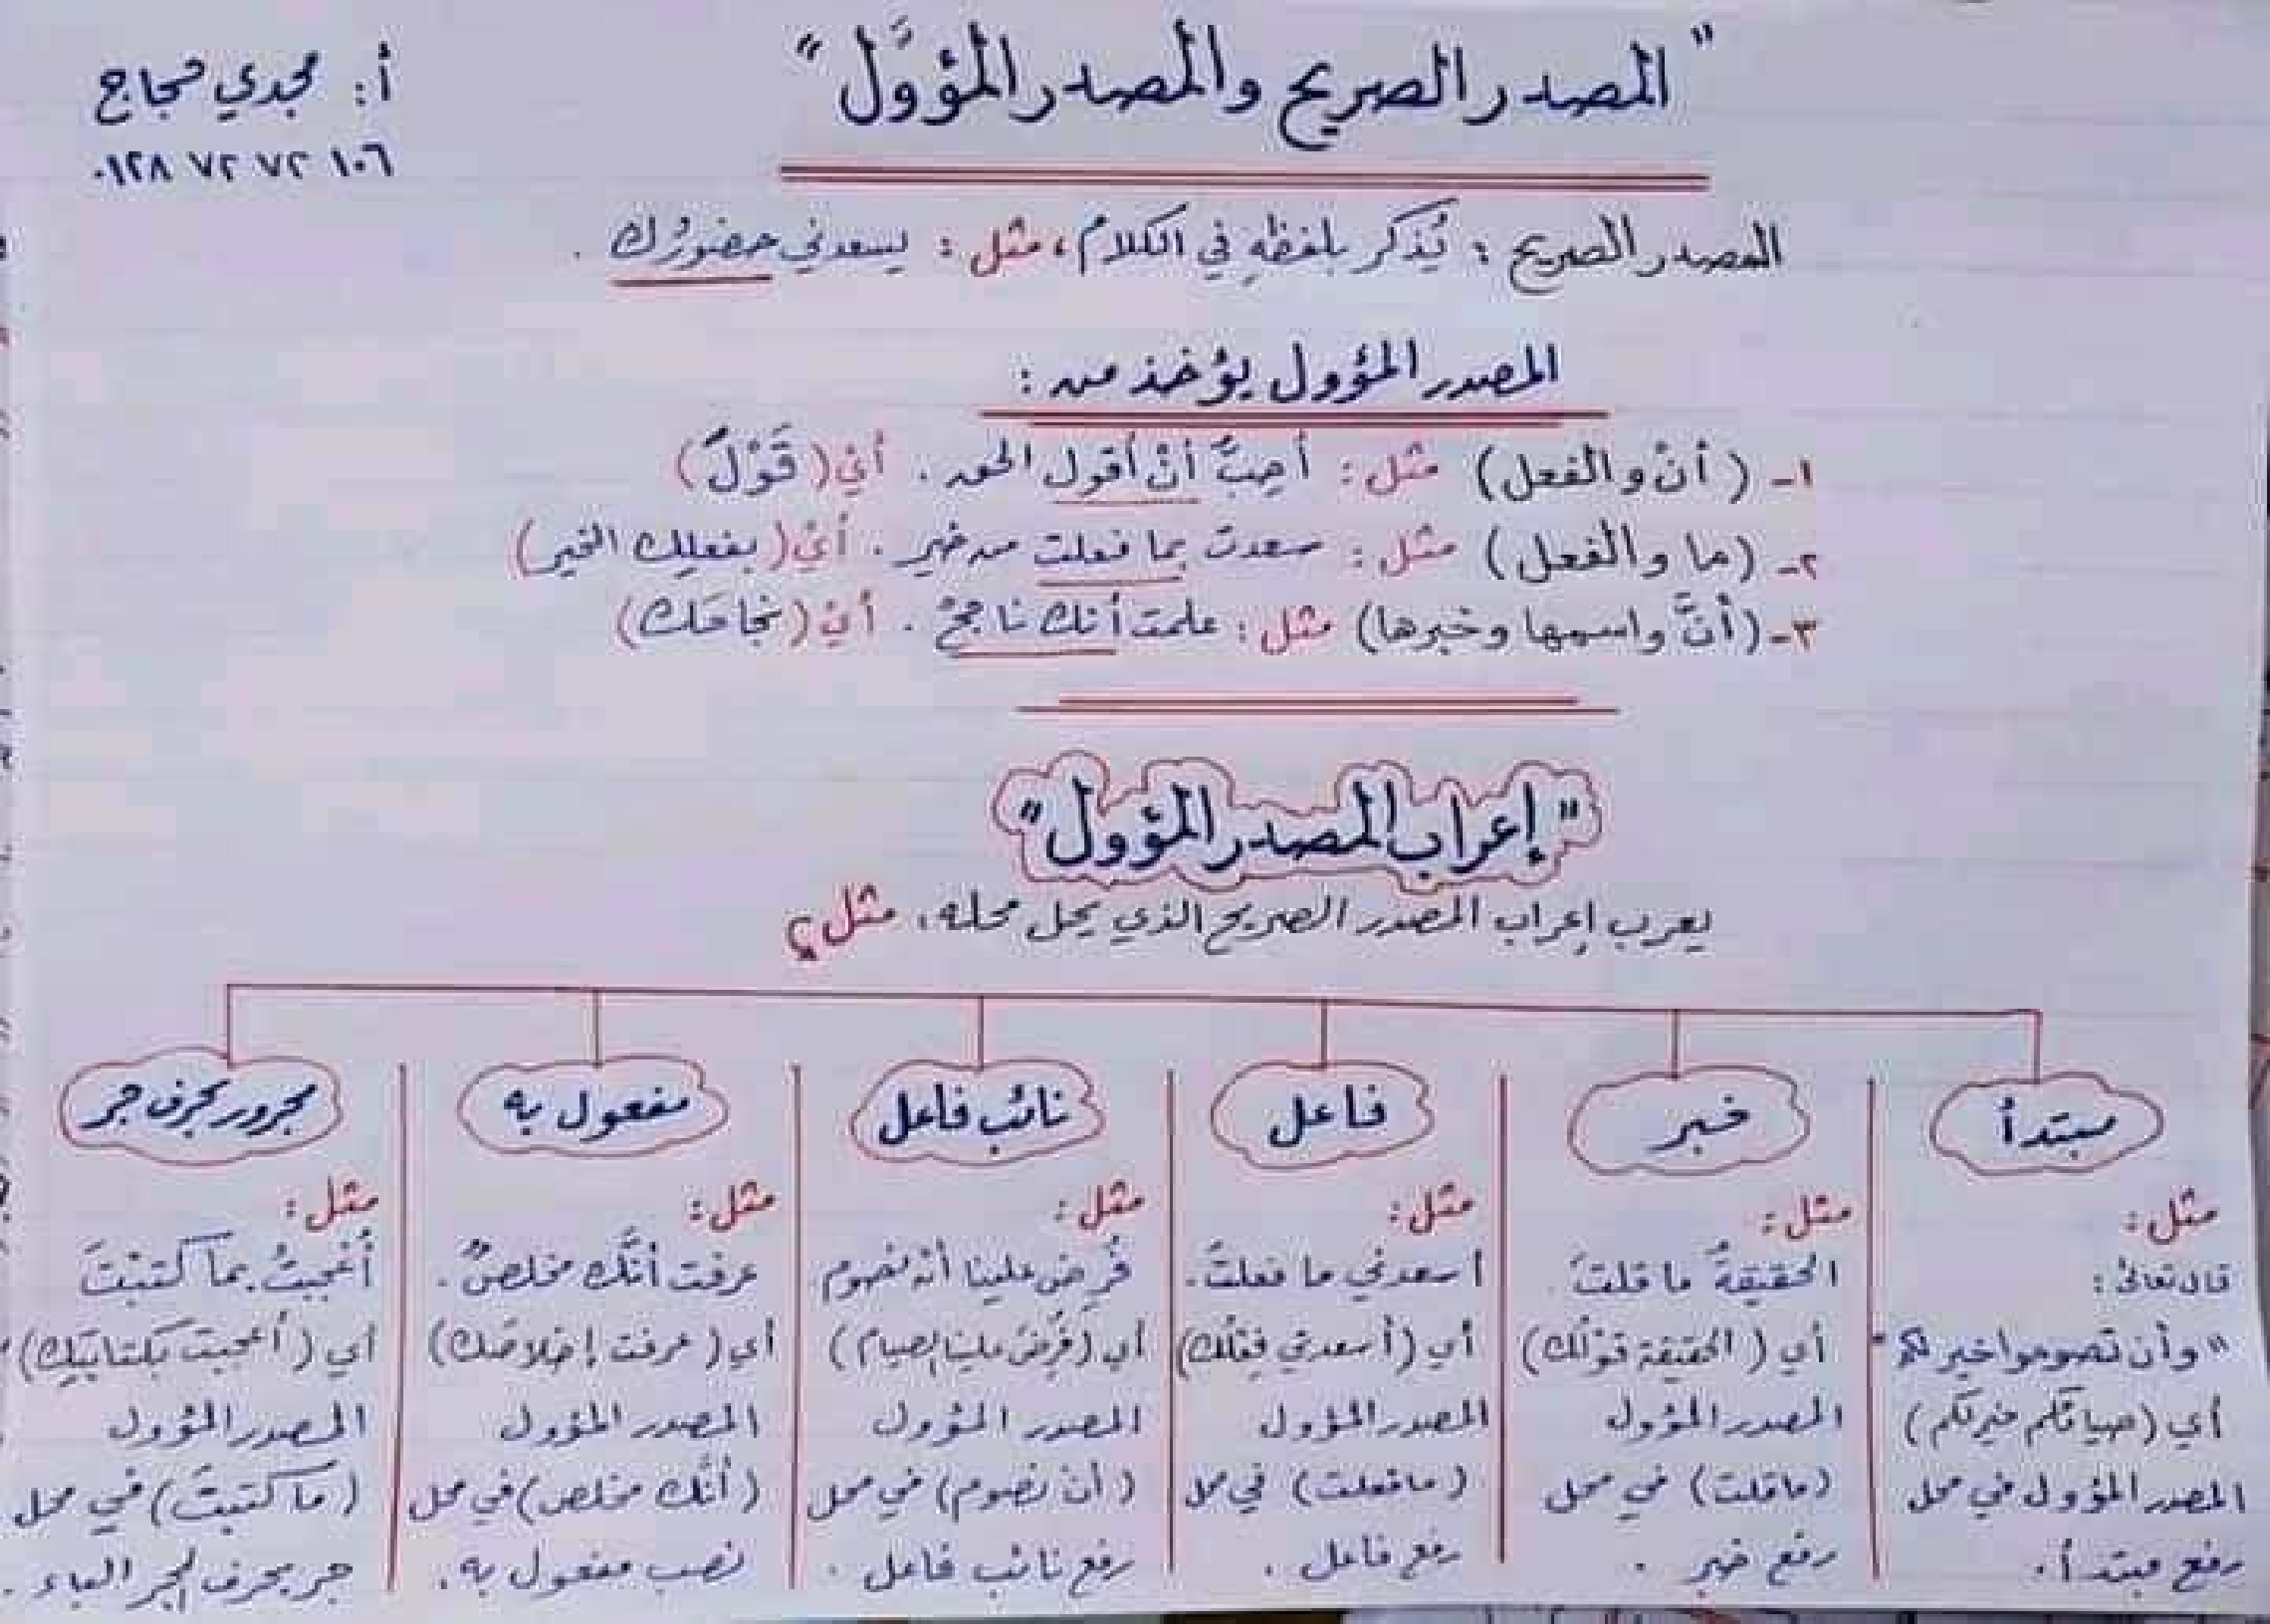 "المصدر الصريح والمصدر المؤوَّل"
أ: مجدي حجاج
٠١٢٨ ٧٢ ٧٢ ١٠٦
المصدر الصريح : يُذكر بلفظهِ في الكلام، مثل : يسعدني حضورُك .
المصدر المؤول يؤخذ من :
١- (أنْ والفعل) مثل : أحِبُّ أنْ أقول الحق . أيْ (قَوْلَ)
٢- (ما والفعل) مثل : سعدت بما فعلت من خير . أيْ (بفعلِك الخير)
٣- (أنَّ واسمها وخبرها) مثل : علمت أنك ناجحٌ . أيْ (نجاحَك)
"إعراب المصدر المؤول"
يعرب إعراب المصدر الصريح الذي يحل محله، مثل
مبتدأ
مثل :
قال تعالى :
"وأن تصوموا خير لكم"
أي (صيامكم خير لكم)
المصدر المؤول في محل
رفع مبتدأ .
خبر
مثل :
الحقيقةُ ما قلتَ .
أي (الحقيقة قوْلُك)
المصدر المؤول
(ما قلت) في محل
رفع خبر .
فاعل
مثل :
أسعدني ما فعلتَ .
أي (أسعدني فِعْلُك)
المصدر المؤول
(ما فعلت) في محل
رفع فاعل .
نائب فاعل
مثل :
فُرِض علينا أنْ نصوم .
أي (فُرِضَ علينا الصيام)
المصدر المؤول
(أنْ نصوم) في محل
رفع نائب فاعل .
مفعول به
مثل :
عرفت أنَّك مخلصٌ .
أي (عرفت إخلاصَك)
المصدر المؤول
(أنَّك مخلص) في محل
نصب مفعول به .
مجرور بحرف جر
مثل :
أُعْجِبتُ بما كتبْتَ
أي (أعجبت بكتابتِك)
المصدر المؤول
(ما كتبتَ) في محل
جر بحرف الجر الباء .